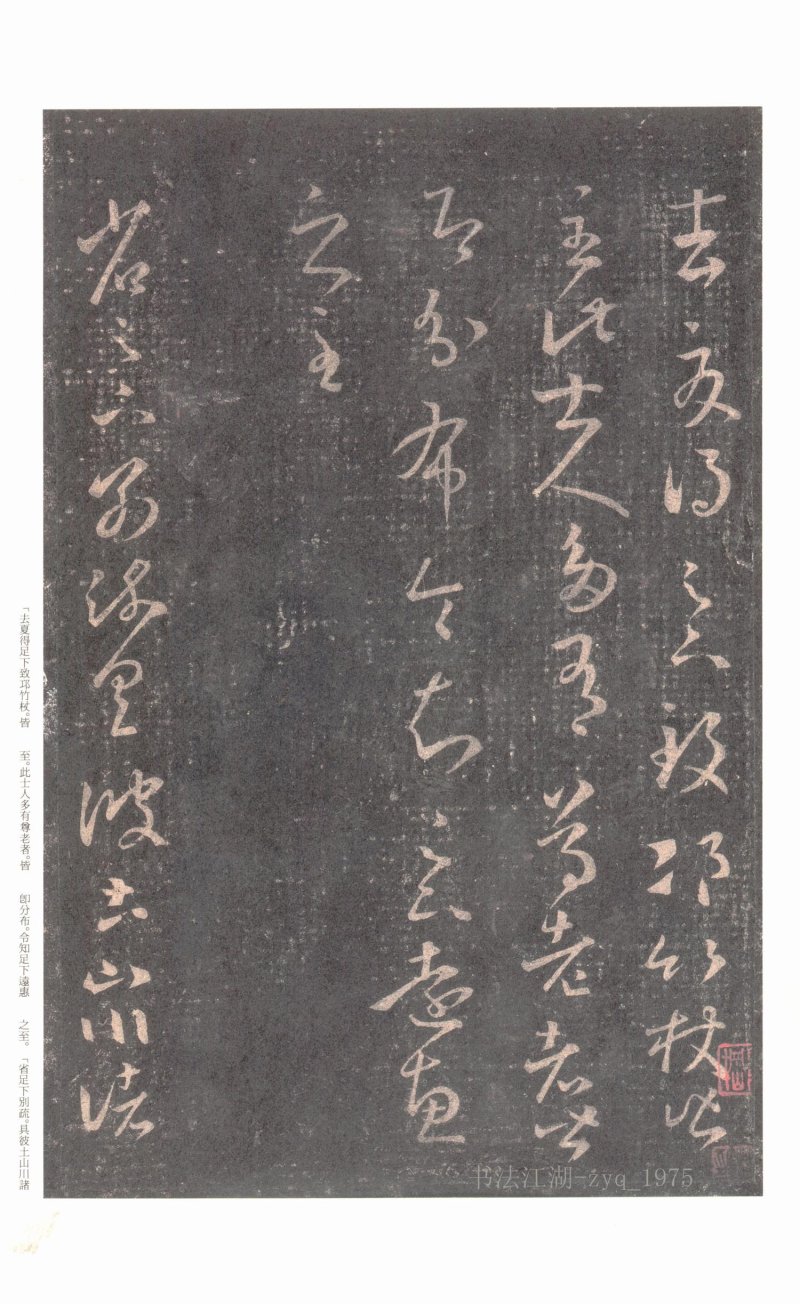 去夏得足下致邛竹杖皆
至此士人多有尊老者皆
即分布令知足下遠惠
之至
省足下別疏具彼土山川諸
「去夏得足下致邛竹杖。皆
至。此士人多有尊老者。皆
卽分布。令知足下遠惠
之至。
「省足下別疏。具彼土山川諸
书法江湖-zyq_1975